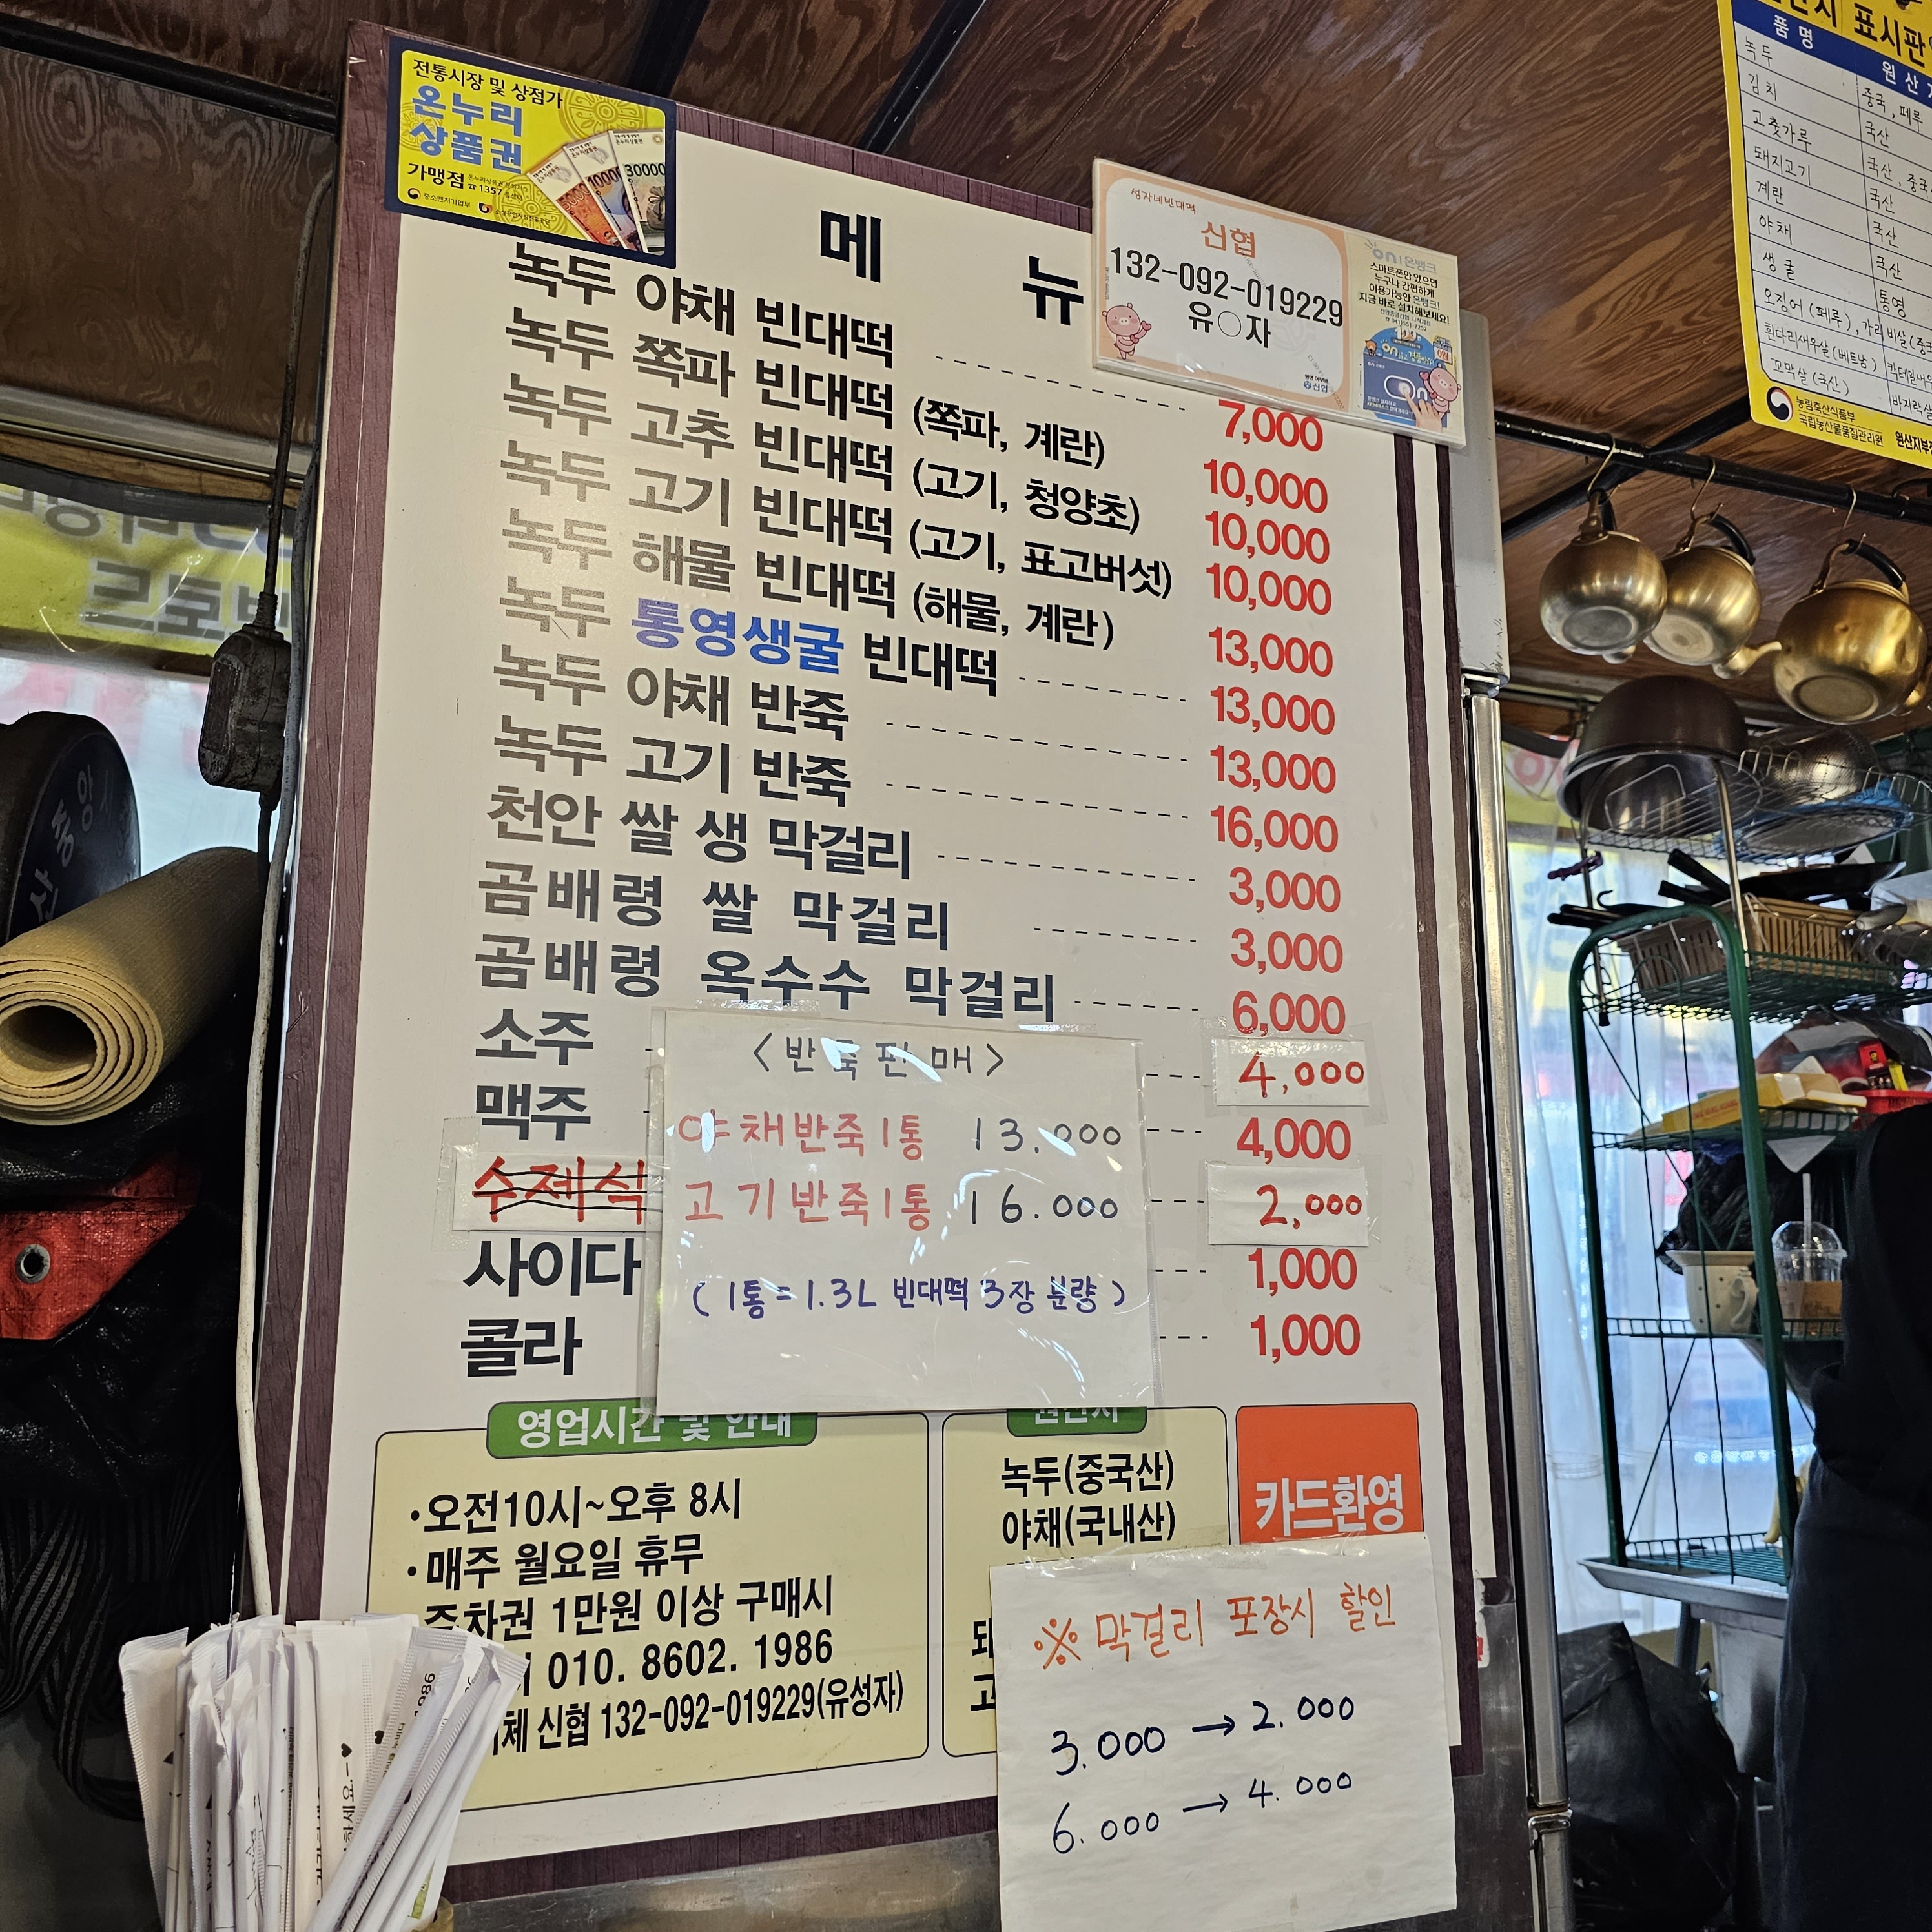 전통시장 및 상점가
온누리
상품권
가맹점 ☎1357
중소벤처기업부
메 뉴
성자네빈대떡
신협
132-092-019229
유○자
on 온뱅크
스마트폰만 있으면
누구나 간편하게
이용가능한 온뱅크!
지금 바로 설치해보세요!
신협
녹두 야채 빈대떡 7,000
녹두 쪽파 빈대떡 (쪽파, 계란) 10,000
녹두 고추 빈대떡 (고기, 청양초) 10,000
녹두 고기 빈대떡 (고기, 표고버섯) 10,000
녹두 해물 빈대떡 (해물, 계란) 13,000
녹두 통영생굴 빈대떡 13,000
녹두 야채 반죽 13,000
녹두 고기 반죽 16,000
천안 쌀 생 막걸리 3,000
곰배령 쌀 막걸리 3,000
곰배령 옥수수 막걸리 6,000
소주 4,000
맥주 4,000
수제식 2,000
사이다 1,000
콜라 1,000
<반죽판매>
야채반죽1통 13.000
고기반죽1통 16.000
(1통=1.3L 빈대떡 3장 분량)
영업시간 및 안내
·오전10시~오후 8시
·매주 월요일 휴무
주차권 1만원 이상 구매시
010. 8602. 1986
체 신협 132-092-019229(유성자)
원산지
녹두(중국산)
야채(국내산)
돼
고
카드환영
※ 막걸리 포장시 할인
3.000 → 2.000
6.000 → 4.000
표시판
품명 원산지
녹두 중국, 페루
김치 국산
고춧가루 국산, 중국
돼지고기 국산
계란 국산
야채 국산
생굴 통영
오징어(페루), 가리비살(중국
흰다리새우살(베트남) 칵테일새우
꼬막살(국산) 바지락살
농림축산식품부
국립농산물품질관리원